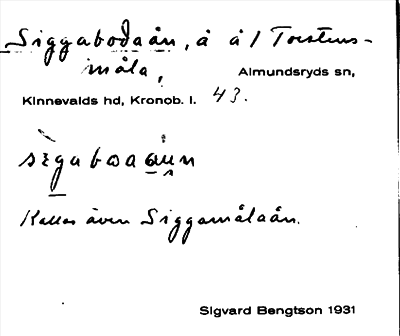 Siggabodaån, å å / Torstens-
måla,
Almundsryds sn,
Kinnevalds hd, Kronob. l. 43.
Kallas även Siggamålaån.
Sigvard Bengtson 1931